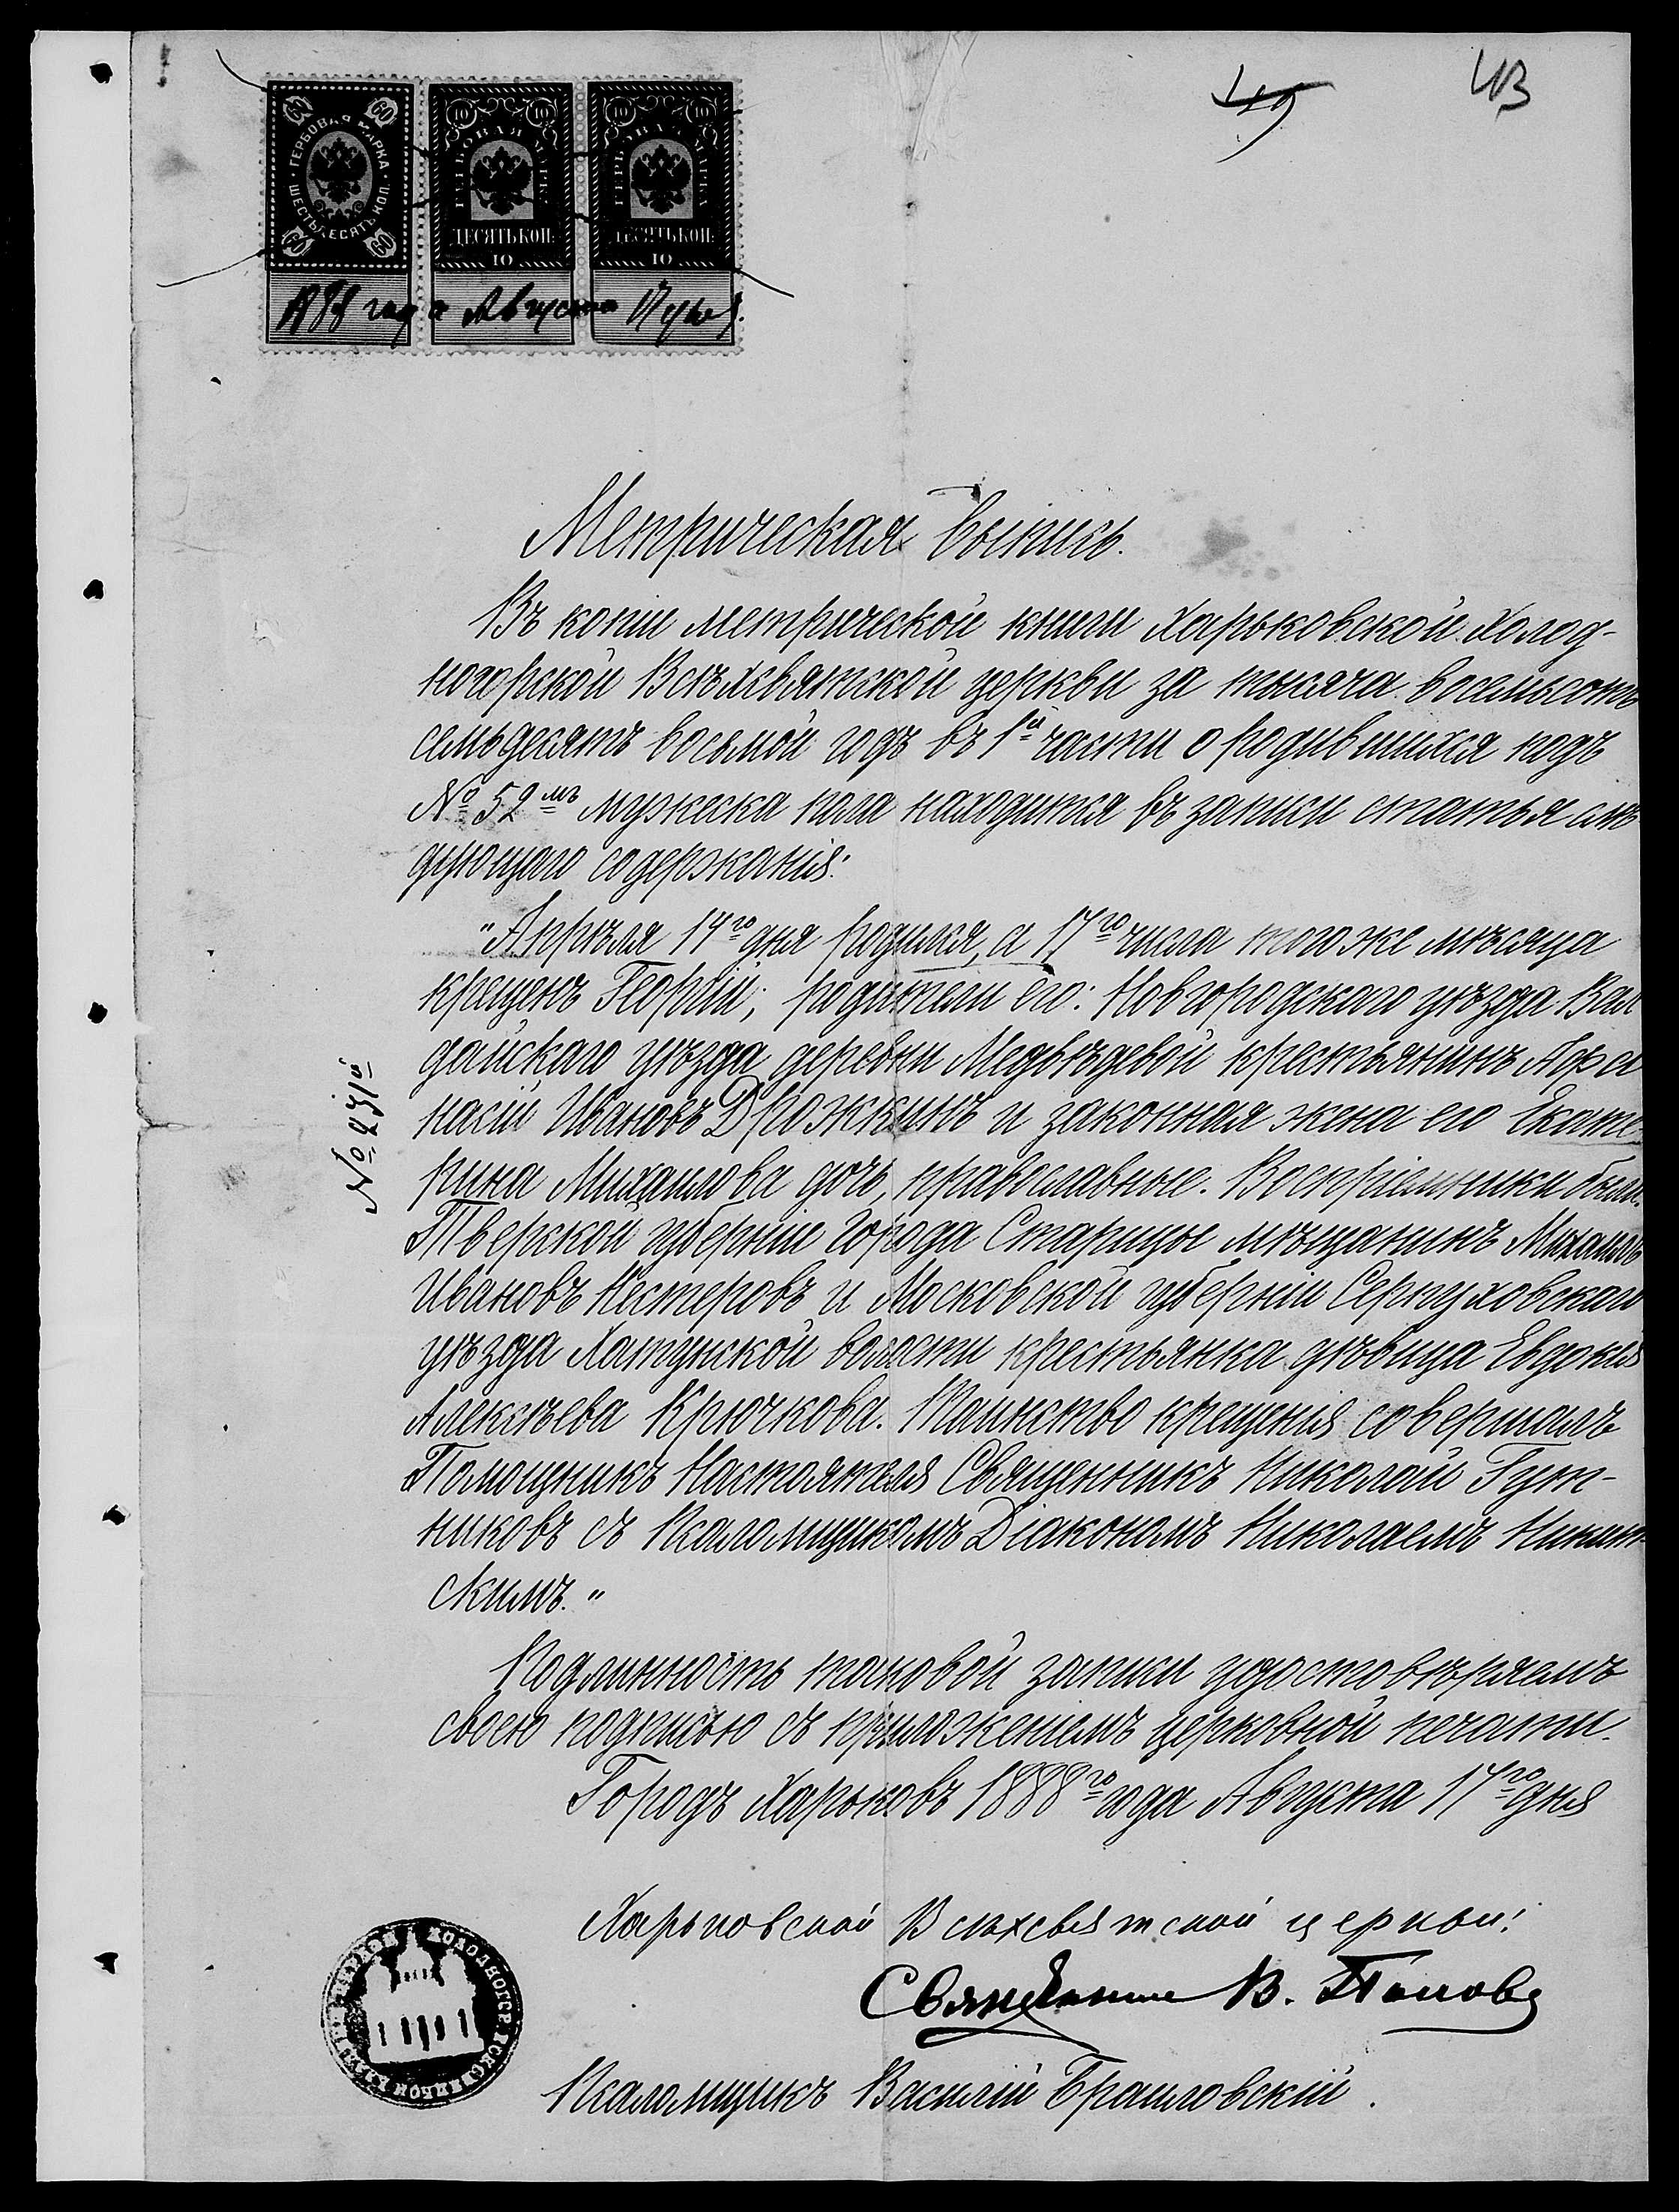 49
43
ГЕРБОВАЯ МАРКА
ШЕСТЬДЕСЯТЪ КОП.
60 60 60 60
ГЕРБОВАЯ МАРКА
10 10
ДЕСЯТЬ КОП:
10
ГЕРБОВАЯ МАРКА
10 10
ДЕСЯТЬ КОП:
10
1888 года Августа 17 дня.
Метрическая выпись.
Въ копіи метрической книги Харьковской Холод-
ногорской Всѣхсвятской церкви за тысяча восемьсотъ
семьдесятъ восьмой годъ въ 1й части о родившихся подъ
№ 52мъ мужеска пола находится въ записи статья слѣ
дующаго содержанія:
"Апрѣля 14го дня родился, а 17го числа того же мѣсяца
крещенъ Георгій; родители его: Новгородскаго уѣзда Вал
дайскаго уѣзда деревни Медвѣдевой крестьянинъ Афа
насій Ивановъ Дрожжинъ и законная жена его Екате-
рина Михаилова дочь, православные. Воспріемники были:
Тверской губерніи города Старицы мѣщанинъ Михаилъ
Ивановъ Нестеровъ и Московской губерніи Серпуховскаго
уѣзда Хатунской волости крестьянка дѣвица Евдокія
Алексѣева Крючкова. Таинство крещенія совершалъ
Помощникъ Настоятеля Священникъ Николай Гут-
никовъ съ Псаломщикомъ Діакономъ Николаемъ
скимъ."
№ 231й
Подлинность таковой записи удостовѣряемъ
своею подписью съ приложеніемъ церковной печати.
Городъ Харьковъ 1888го года Августа 17го дня
Харьковской Всѣхсвятской церкви:
Священникъ В. Поповъ
Псаломщикъ Василій Браиловскій.